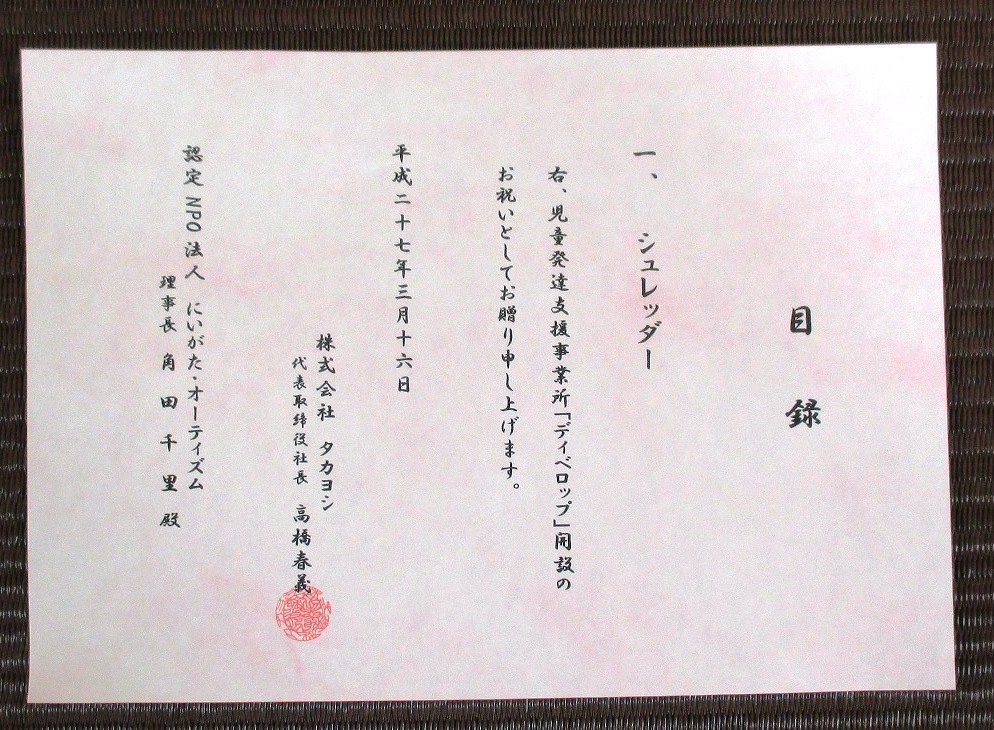 目録
一、 シュレッダー
右、児童発達支援事業所「ディベロップ」開設の
お祝いとしてお贈り申し上げます。
平成二十七年三月十六日
株式会社 タカヨシ
代表取締役社長 高橋春義
認定NPO法人 にいがた・オーティズム
理事長 角田千里 殿